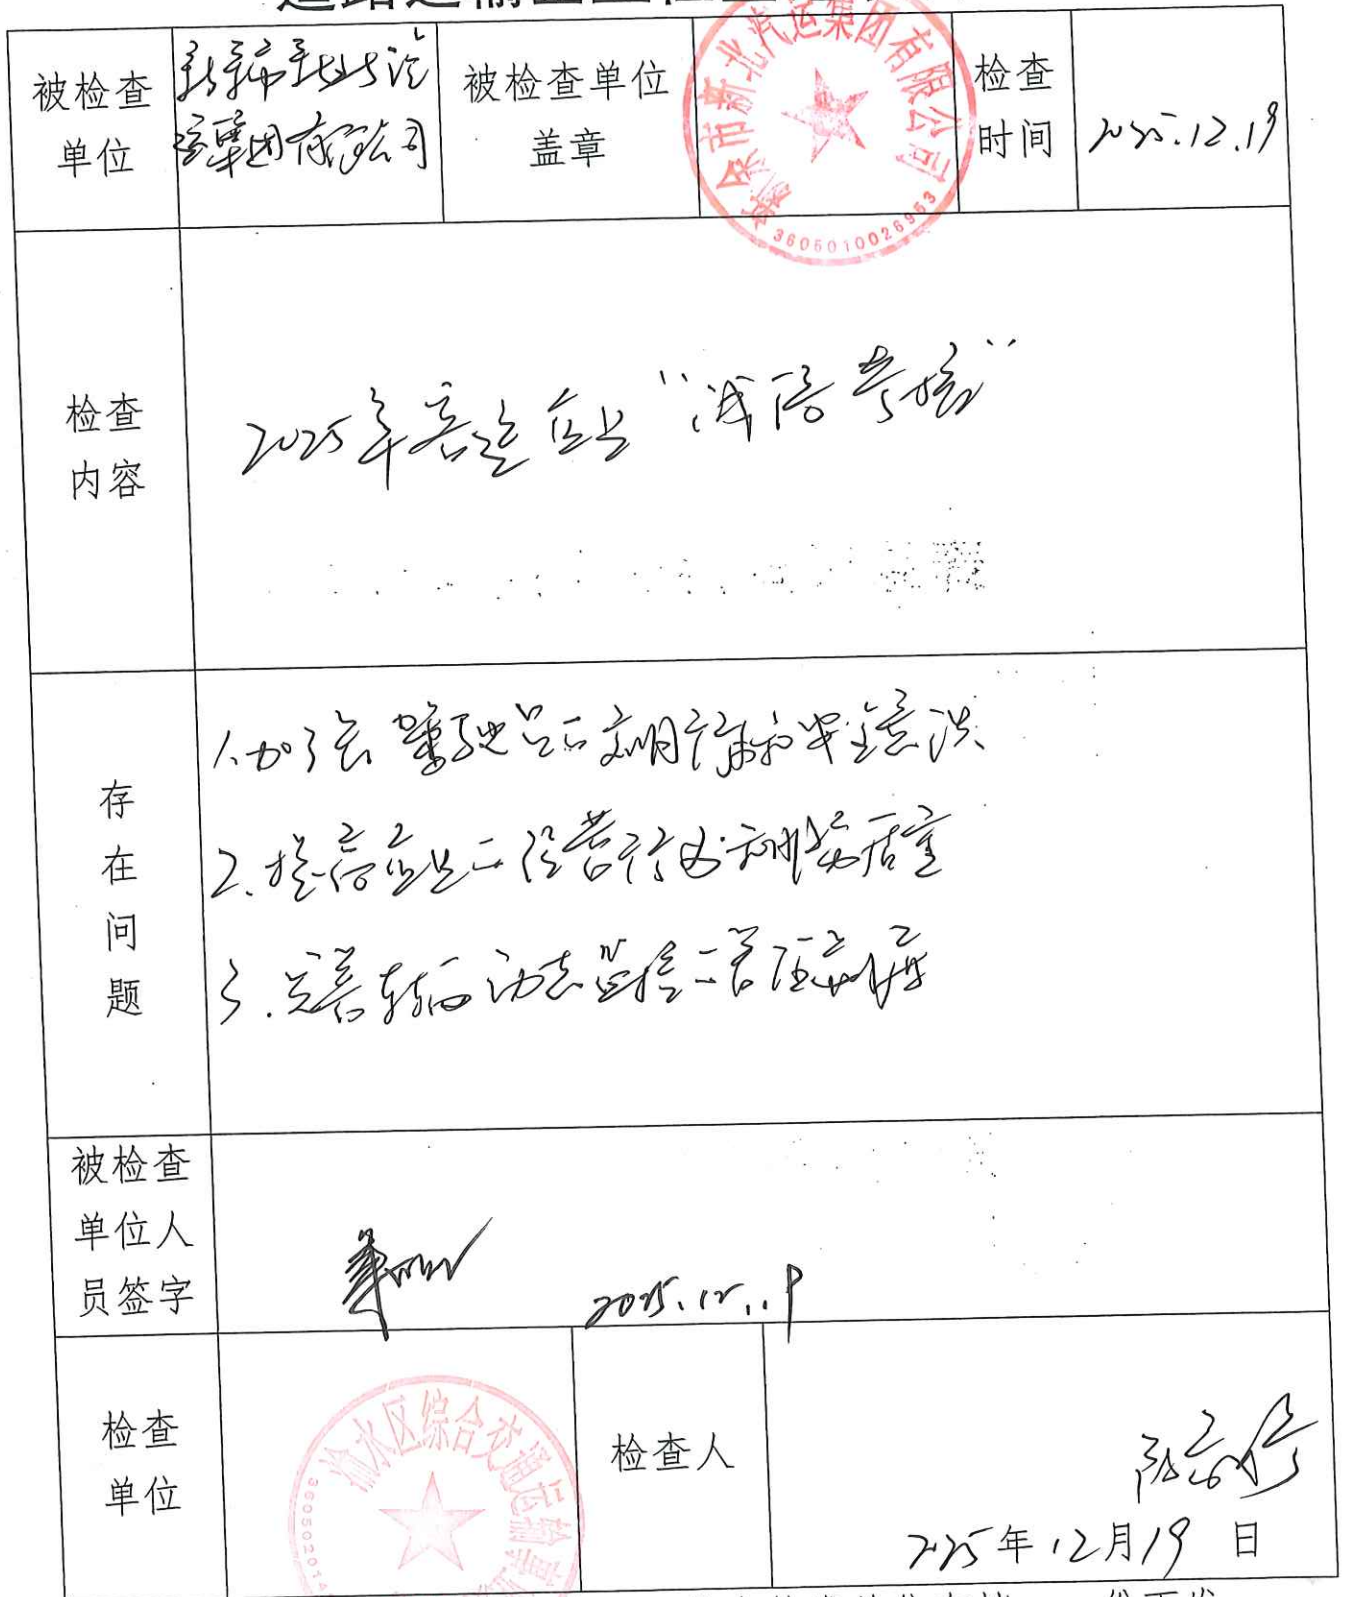 被检查
单位
新余市新北汽
运集团有限公司
被检查单位
盖章
新余市新北汽运集团有限公司
3605010026953
检查
时间
2025.12.19
检查
内容
2025年客运企业“诚信考核”
存
在
问
题
1.加强驾驶员文明行车和安全意识
2.提高企业经营行为
3.完善车辆动态监控
被检查
单位人
员签字
2025.12.19
检查
单位
渝水区综合交通运输
检查人
2025年12月19日